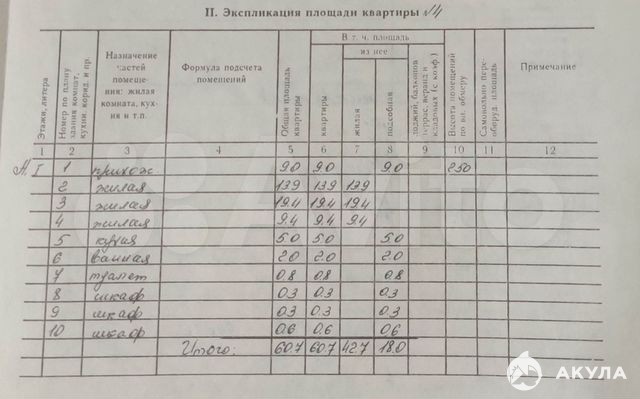 II. Экспликация площади квартиры №4
Этажи, литера
Номер по плану здания комнат, кухни, корид. и пр.
Назначение частей помещения: жилая комната, кухня и т.п.
Формула подсчета помещений
Общая площадь квартиры
В т. ч. площадь
из нее
квартиры
жилая
подсобная
лоджий, балконов террас, веранд и кладовых (с коэф.)
Высота помещений по вн. обмеру
Самовольно переоборуд. площадь
Примечание
1 2 3 4 5 6 7 8 9 10 11 12
А. I 1 прихож 9.0 9.0 9.0 250
2 жилая 13.9 13.9 13.9
3 жилая 19.4 19.4 19.4
4 жилая 9.4 9.4 9.4
5 кухня 5.0 5.0 5.0
6 ванная 2.0 2.0 2.0
7 туалет 0.8 0.8 0.8
8 шкаф 0.3 0.3 0.3
9 шкаф 0.3 0.3 0.3
10 шкаф 0.6 0.6 0.6
Итого: 60.7 60.7 42.7 18.0
АКУЛА